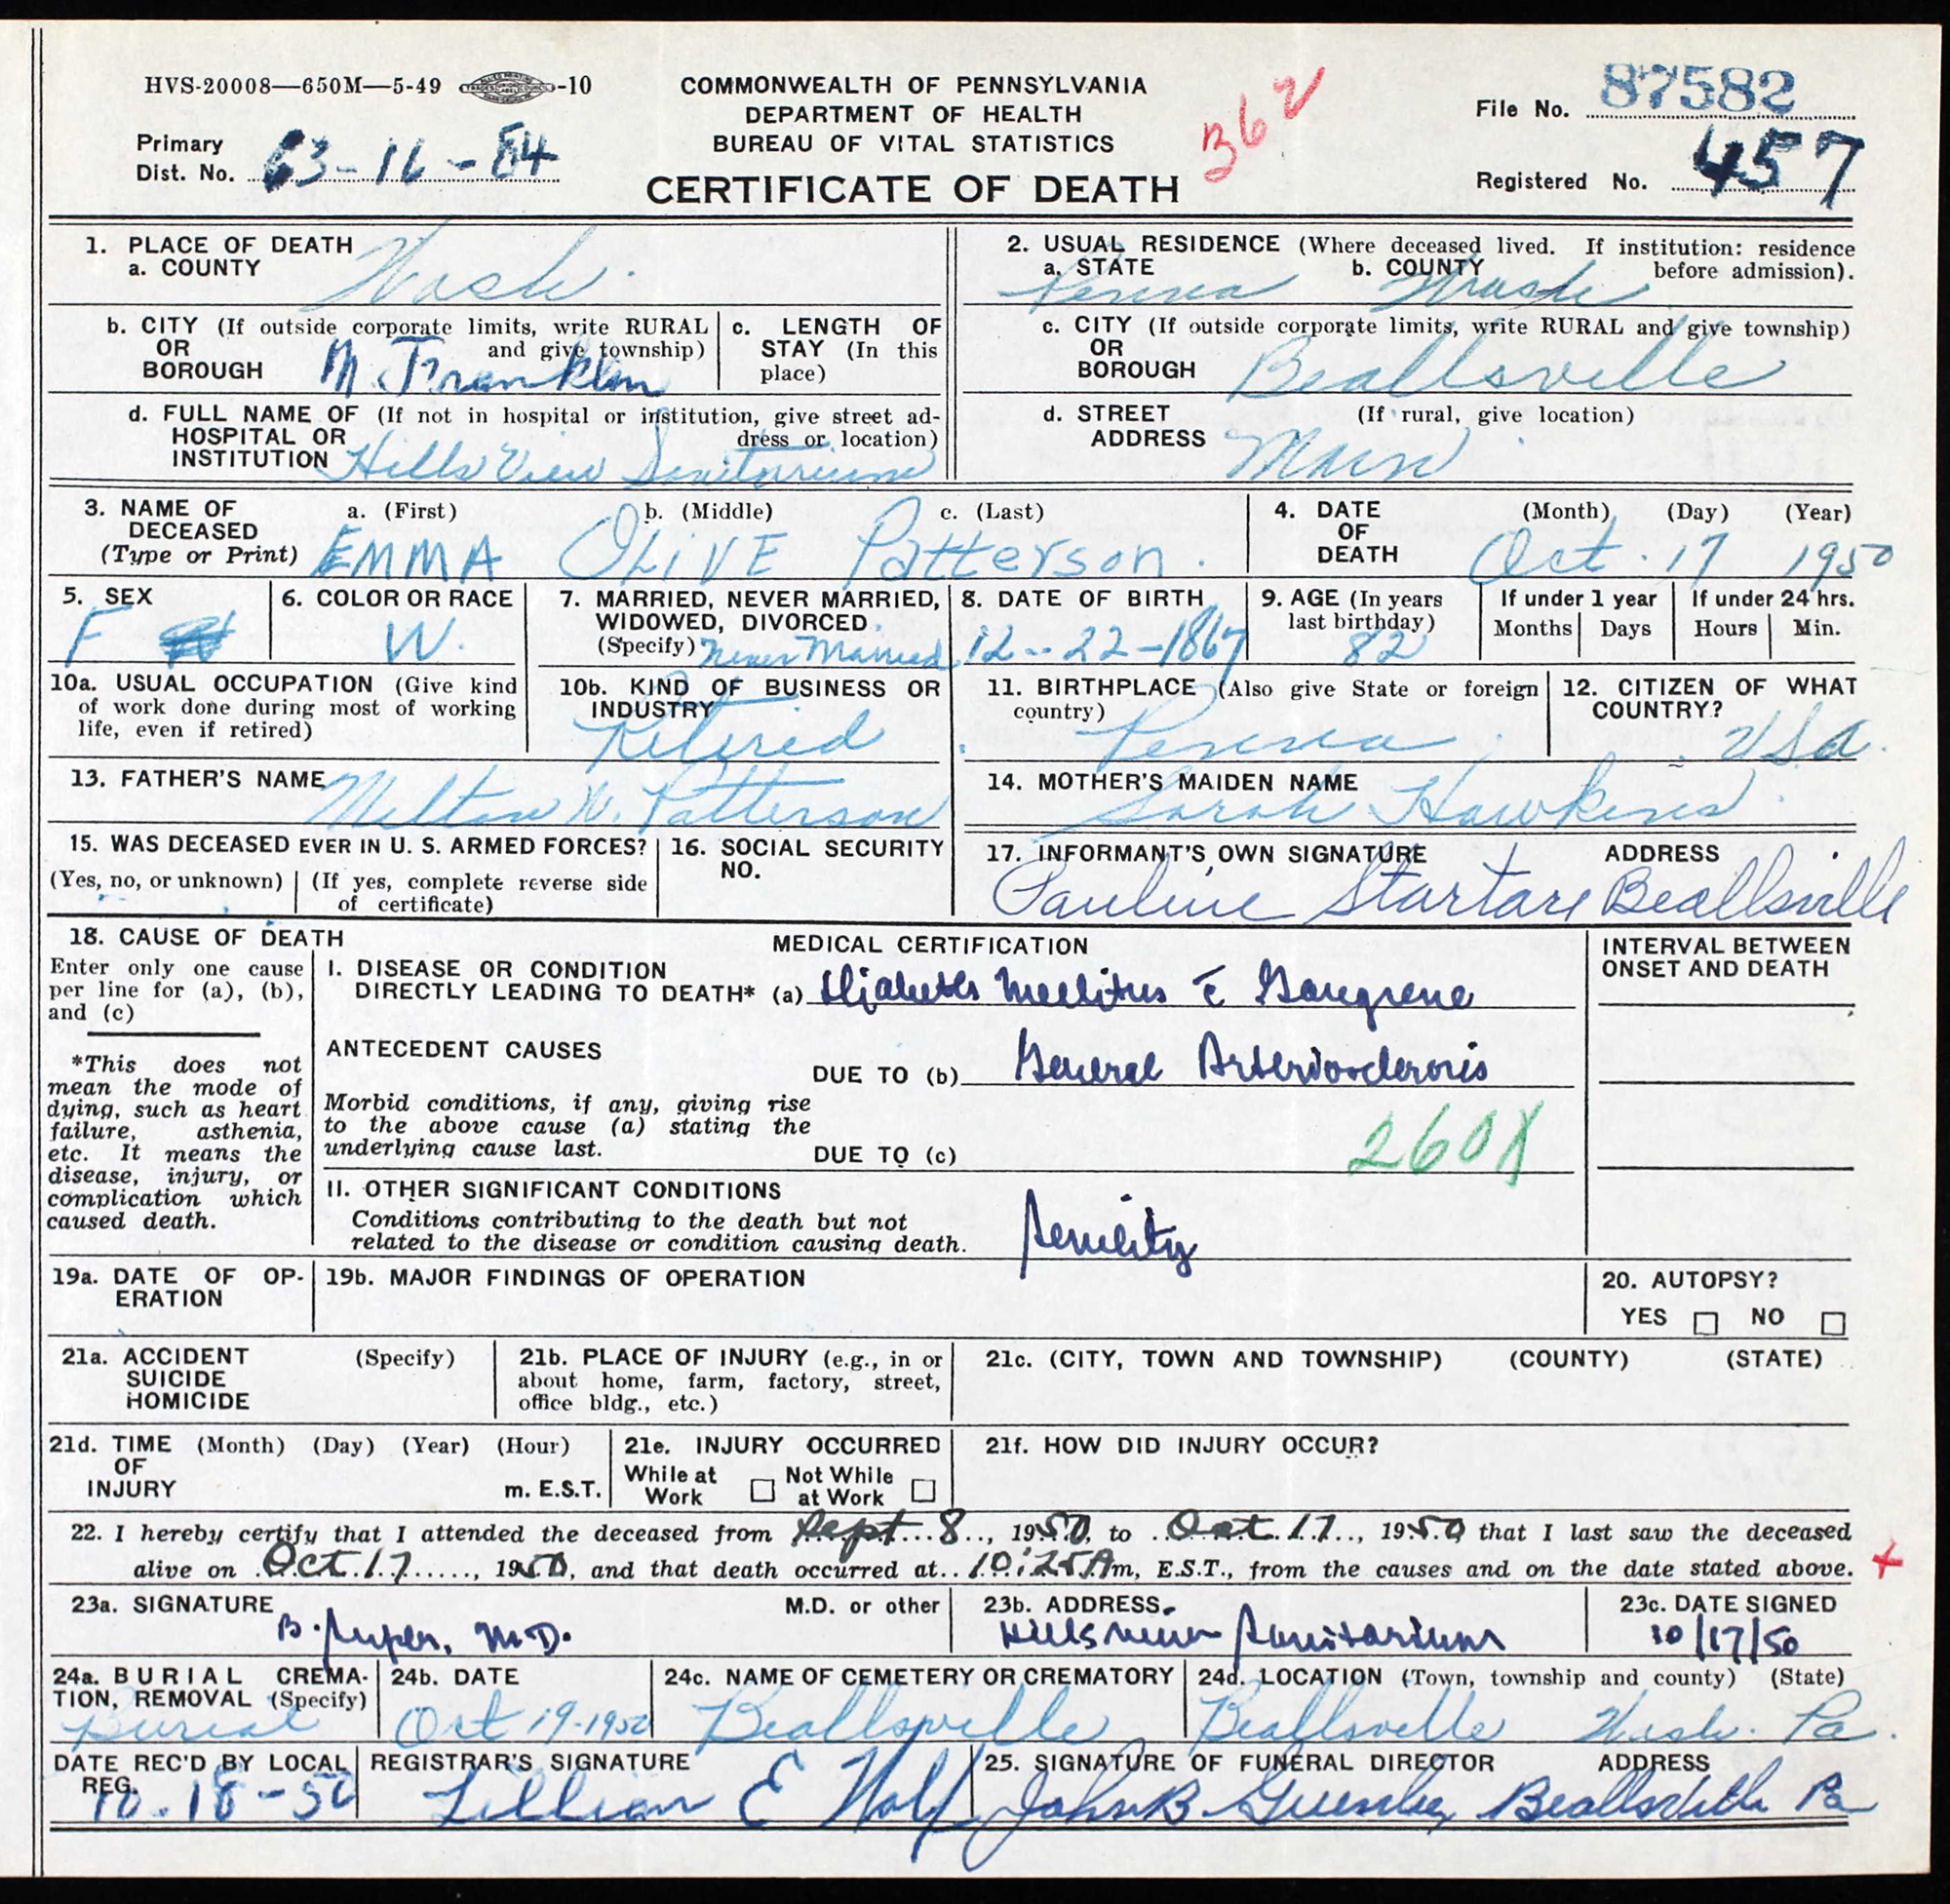 HVS-20008—650M—5-49 -10
COMMONWEALTH OF PENNSYLVANIA
DEPARTMENT OF HEALTH
BUREAU OF VITAL STATISTICS
CERTIFICATE OF DEATH
362
File No. 87582
Primary
Dist. No. 63-16-84
Registered No. 457
1. PLACE OF DEATH
a. COUNTY Wash.
2. USUAL RESIDENCE (Where deceased lived. If institution: residence before admission).
a. STATE Penna b. COUNTY Wash
b. CITY (If outside corporate limits, write RURAL and give township)
OR
BOROUGH N. Franklin
c. LENGTH OF STAY (In this place)
c. CITY (If outside corporate limits, write RURAL and give township)
OR
BOROUGH Beallsville
d. FULL NAME OF (If not in hospital or institution, give street address or location)
HOSPITAL OR
INSTITUTION Hills View Sanitarium
d. STREET (If rural, give location)
ADDRESS Main
3. NAME OF DECEASED
(Type or Print)
a. (First) b. (Middle) c. (Last)
EMMA OLIVE Patterson.
4. DATE OF DEATH (Month) (Day) (Year)
Oct. 17 1950
5. SEX
F
6. COLOR OR RACE
W.
7. MARRIED, NEVER MARRIED, WIDOWED, DIVORCED
(Specify) Never Married
8. DATE OF BIRTH
12--22-1867
9. AGE (In years last birthday)
82
If under 1 year
Months Days
If under 24 hrs.
Hours Min.
10a. USUAL OCCUPATION (Give kind
of work done during most of working
life, even if retired)
10b. KIND OF BUSINESS OR INDUSTRY
Retired
11. BIRTHPLACE (Also give State or foreign country)
Penna
12. CITIZEN OF WHAT COUNTRY?
USA.
13. FATHER'S NAME
Milton N. Patterson
14. MOTHER'S MAIDEN NAME
Sarah Hawkins
15. WAS DECEASED EVER IN U. S. ARMED FORCES?
(Yes, no, or unknown) (If yes, complete reverse side of certificate)
16. SOCIAL SECURITY NO.
17. INFORMANT'S OWN SIGNATURE ADDRESS
Pauline Startare Beallsville
18. CAUSE OF DEATH
Enter only one cause
per line for (a), (b),
and (c)
*This does not
mean the mode of
dying, such as heart
failure, asthenia,
etc. It means the
disease, injury, or
complication which
caused death.
MEDICAL CERTIFICATION
I. DISEASE OR CONDITION
DIRECTLY LEADING TO DEATH* (a) Diabetes Mellitus c̄ Gangrene
ANTECEDENT CAUSES
DUE TO (b) General Arteriosclerosis
Morbid conditions, if any, giving rise
to the above cause (a) stating the
underlying cause last.
DUE TO (c)
260X
II. OTHER SIGNIFICANT CONDITIONS
Conditions contributing to the death but not
related to the disease or condition causing death.
Senility
INTERVAL BETWEEN
ONSET AND DEATH
19a. DATE OF OPERATION
19b. MAJOR FINDINGS OF OPERATION
20. AUTOPSY?
YES NO
21a. ACCIDENT (Specify)
SUICIDE
HOMICIDE
21b. PLACE OF INJURY (e.g., in or
about home, farm, factory, street,
office bldg., etc.)
21c. (CITY, TOWN AND TOWNSHIP) (COUNTY) (STATE)
21d. TIME (Month) (Day) (Year) (Hour)
OF
INJURY m. E.S.T.
21e. INJURY OCCURRED
While at Work Not While at Work
21f. HOW DID INJURY OCCUR?
22. I hereby certify that I attended the deceased from Sept. 8, 1950, to Oct. 17, 1950, that I last saw the deceased
alive on Oct. 17, 1950, and that death occurred at 10:25 Am, E.S.T., from the causes and on the date stated above.
23a. SIGNATURE M.D. or other
B. M.D.
23b. ADDRESS
Hillsview Sanitarium
23c. DATE SIGNED
10/17/50
24a. BURIAL CREMATION, REMOVAL (Specify)
Burial
24b. DATE
Oct 19-1950
24c. NAME OF CEMETERY OR CREMATORY
Beallsville
24d. LOCATION (Town, township and county) (State)
Beallsville Wash. Pa.
DATE REC'D BY LOCAL REG.
10-18-50
REGISTRAR'S SIGNATURE
Lillian E Wolf
25. SIGNATURE OF FUNERAL DIRECTOR ADDRESS
John B. Beallsville Pa